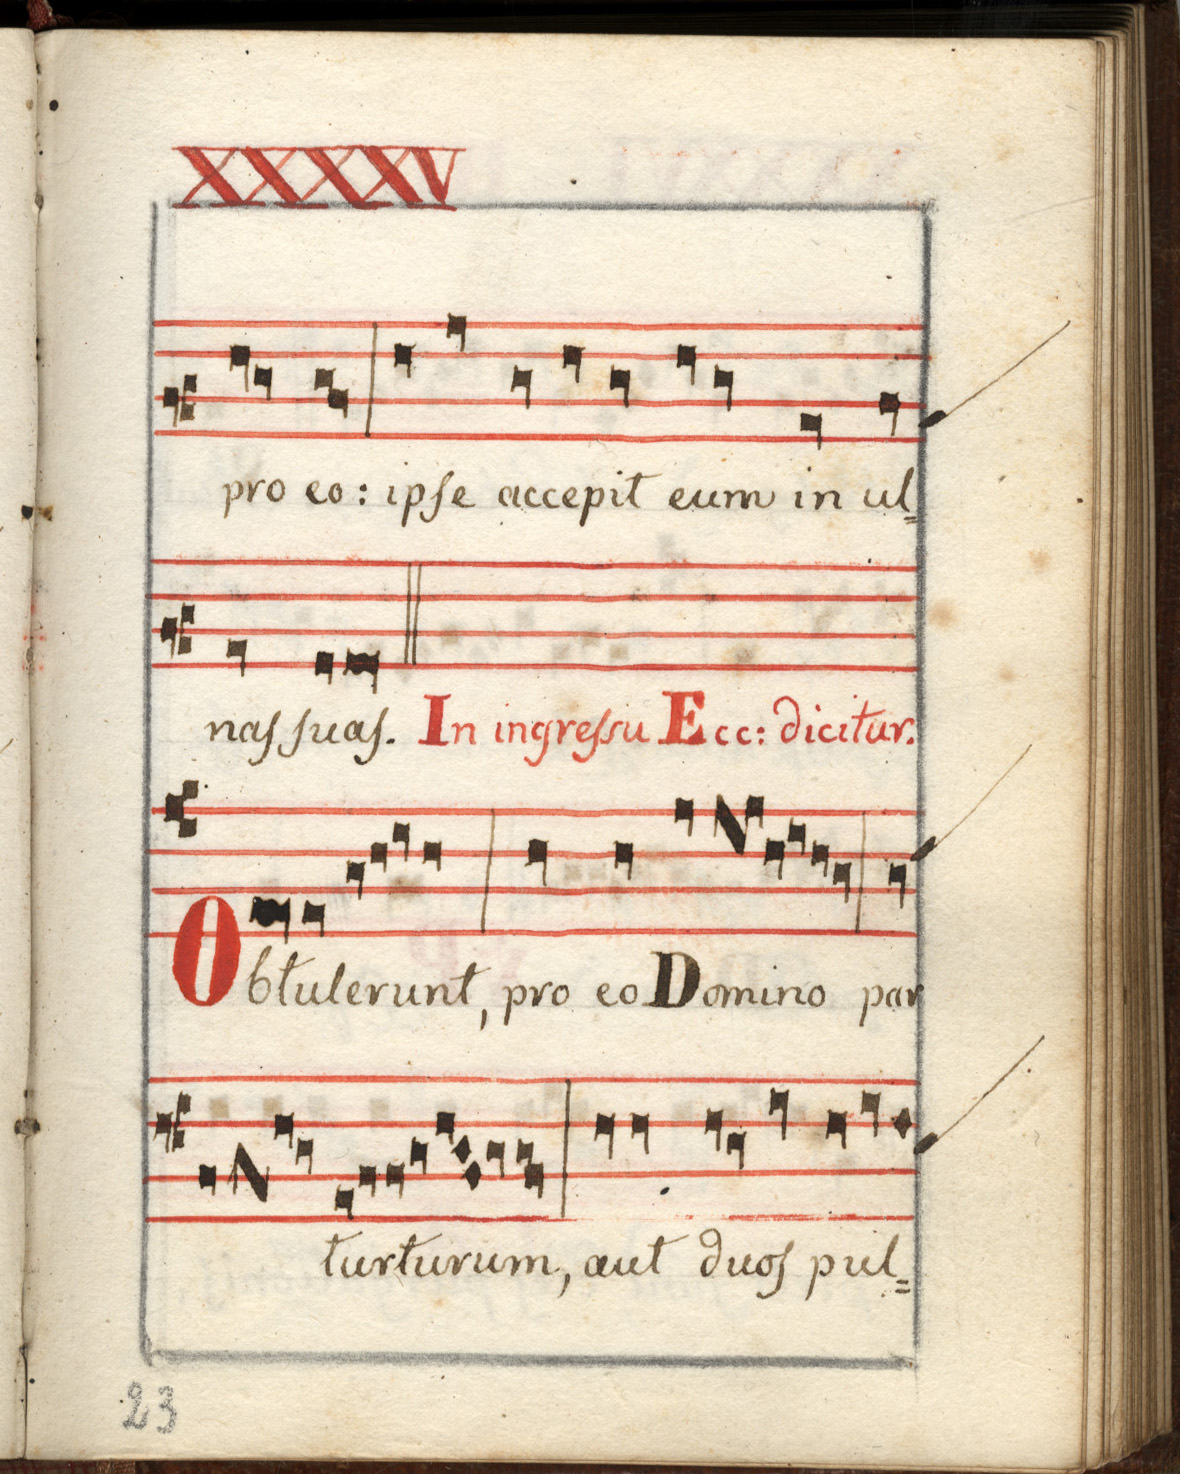 XXXXV
pro eo: ipſe accepit eum in ul=
naſ ſuaſ. In ingreſsu Ecc: dicitur.
Obtulerunt, pro eo Domino par
turturum, aut duoſ pul=
23